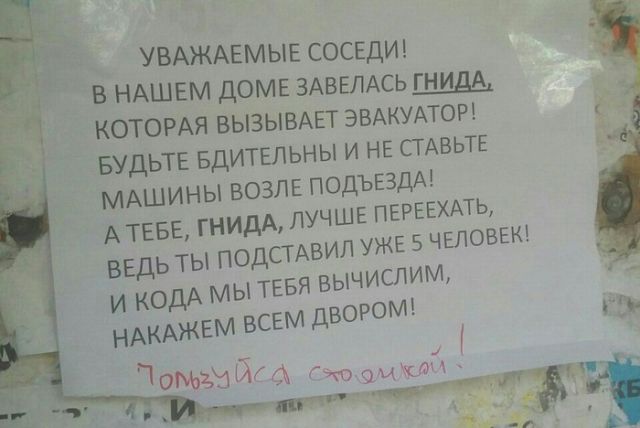 УВАЖАЕМЫЕ СОСЕДИ!
В НАШЕМ ДОМЕ ЗАВЕЛАСЬ ГНИДА,
КОТОРАЯ ВЫЗЫВАЕТ ЭВАКУАТОР!
БУДЬТЕ БДИТЕЛЬНЫ И НЕ СТАВЬТЕ
МАШИНЫ ВОЗЛЕ ПОДЪЕЗДА!
А ТЕБЕ, ГНИДА, ЛУЧШЕ ПЕРЕЕХАТЬ,
ВЕДЬ ТЫ ПОДСТАВИЛ УЖЕ 5 ЧЕЛОВЕК!
И КОДА МЫ ТЕБЯ ВЫЧИСЛИМ,
НАКАЖЕМ ВСЕМ ДВОРОМ!
Пользуйся стоянкой!